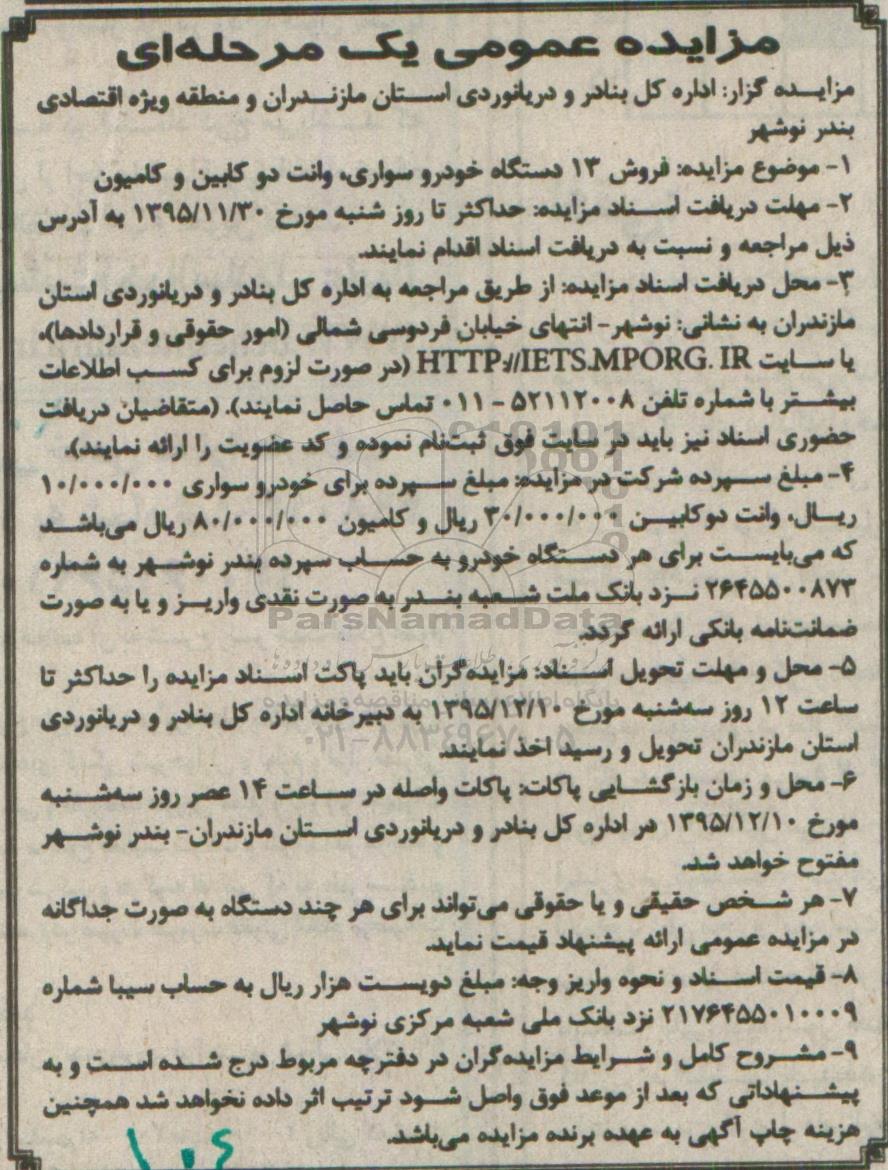 مزایده عمومی یک مرحله‌ای
مزایده گزار: اداره کل بنادر و دریانوردی استان مازندران و منطقه ویژه اقتصادی
بندر نوشهر
۱- موضوع مزایده: فروش ۱۳ دستگاه خودرو سواری، وانت دو کابین و کامیون
۲- مهلت دریافت اسناد مزایده: حداکثر تا روز شنبه مورخ ۱۳۹۵/۱۱/۳۰ به آدرس
ذیل مراجعه و نسبت به دریافت اسناد اقدام نمایند.
۳- محل دریافت اسناد مزایده: از طریق مراجعه به اداره کل بنادر و دریانوردی استان
مازندران به نشانی: نوشهر- انتهای خیابان فردوسی شمالی (امور حقوقی و قراردادها)،
یا سایت HTTP://IETS.MPORG.IR (در صورت لزوم برای کسب اطلاعات
بیشتر با شماره تلفن ۵۲۱۱۲۰۰۸ - ۰۱۱ تماس حاصل نمایند). (متقاضیان دریافت
حضوری اسناد نیز باید در سایت فوق ثبت‌نام نموده و کد عضویت را ارائه نمایند).
۴- مبلغ سپرده شرکت در مزایده: مبلغ سپرده برای خودرو سواری ۱۰/۰۰۰/۰۰۰
ریال، وانت دوکابین ۳۰/۰۰۰/۰۰۰ ریال و کامیون ۸۰/۰۰۰/۰۰۰ ریال می‌باشد
که می‌بایست برای هر دستگاه خودرو به حساب سپرده بندر نوشهر به شماره
۲۶۴۵۵۰۰۸۷۳ نزد بانک ملت شعبه بندر به صورت نقدی واریز و یا به صورت
ضمانت‌نامه بانکی ارائه گردد.
۵- محل و مهلت تحویل اسناد: مزایده‌گران باید پاکت اسناد مزایده را حداکثر تا
ساعت ۱۲ روز سه‌شنبه مورخ ۱۳۹۵/۱۲/۱۰ به دبیرخانه اداره کل بنادر و دریانوردی
استان مازندران تحویل و رسید اخذ نمایند.
۶- محل و زمان بازگشایی پاکات: پاکات واصله در ساعت ۱۴ عصر روز سه‌شنبه
مورخ ۱۳۹۵/۱۲/۱۰ در اداره کل بنادر و دریانوردی استان مازندران- بندر نوشهر
مفتوح خواهد شد.
۷- هر شخص حقیقی و یا حقوقی می‌تواند برای هر چند دستگاه به صورت جداگانه
در مزایده عمومی ارائه پیشنهاد قیمت نماید.
۸- قیمت اسناد و نحوه واریز وجه: مبلغ دویست هزار ریال به حساب سیبا شماره
۲۱۷۶۴۵۵۰۱۰۰۰۹ نزد بانک ملی شعبه مرکزی نوشهر
۹- مشروح کامل و شرایط مزایده‌گران در دفترچه مربوط درج شده است و به
پیشنهاداتی که بعد از موعد فوق واصل شود ترتیب اثر داده نخواهد شد همچنین
هزینه چاپ آگهی به عهده برنده مزایده می‌باشد.
۱۰۴
ParsNamadData